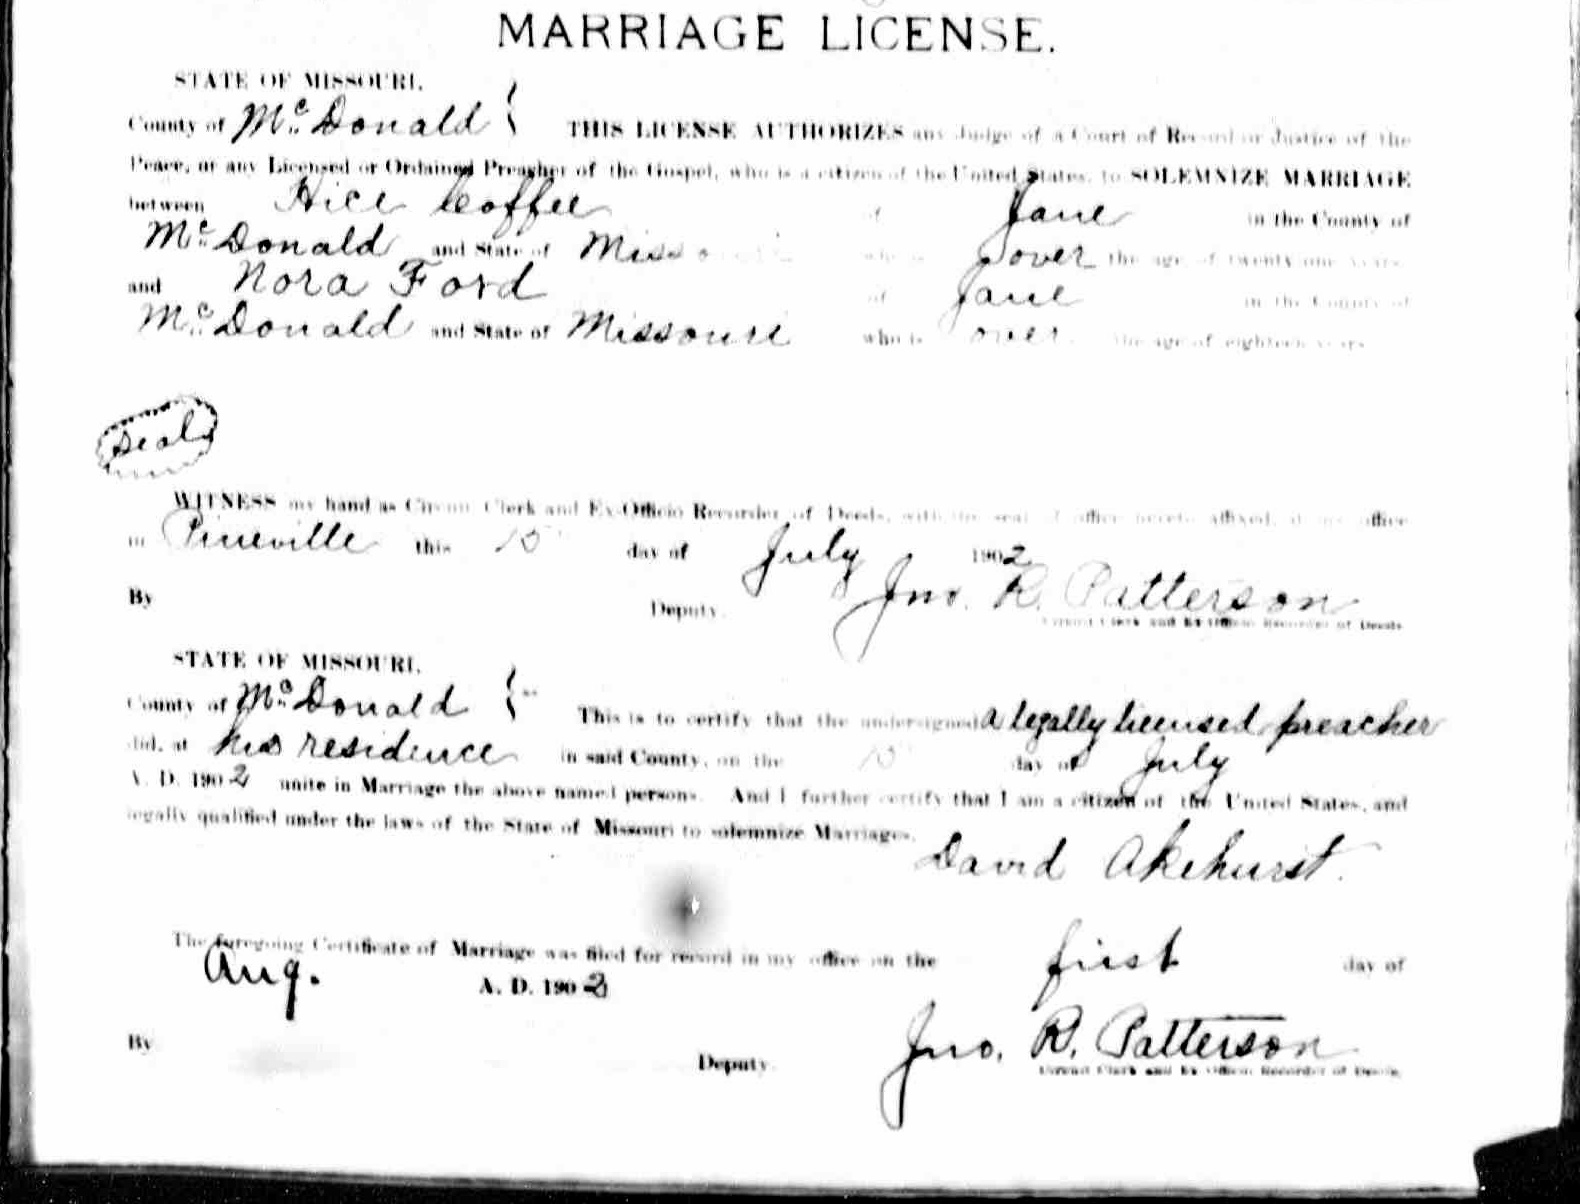 MARRIAGE LICENSE.
STATE OF MISSOURI,
County of Mc Donald } THIS LICENSE AUTHORIZES any Judge of a Court of Record or Justice of the
Peace, or any Licensed or Ordained Preacher of the Gospel, who is a citizen of the United States, to SOLEMNIZE MARRIAGE
between Hice Coffee of Jane in the County of
Mc Donald and State of Missouri who is over the age of twenty-one years
and Nora Ford of Jane in the County of
Mc Donald and State of Missouri who is over the age of eighteen years
Seal
WITNESS my hand as Circuit Clerk and Ex-Officio Recorder of Deeds, with the seal of office hereto affixed, at my office
in Pineville this 15 day of July 1902
Jno. R. Patterson
By Deputy. Circuit Clerk and Ex Officio Recorder of Deeds
STATE OF MISSOURI,
County of Mc Donald } This is to certify that the undersigned a legally licensed preacher
did, at his residence in said County, on the 15 day of July
A. D. 1902 unite in Marriage the above named persons. And I further certify that I am a citizen of the United States, and
legally qualified under the laws of the State of Missouri to solemnize Marriages.
David Akehurst.
The foregoing Certificate of Marriage was filed for record in my office on the first day of
Aug. A. D. 1902
Jno. R. Patterson
By Deputy. Circuit Clerk and Ex Officio Recorder of Deeds.